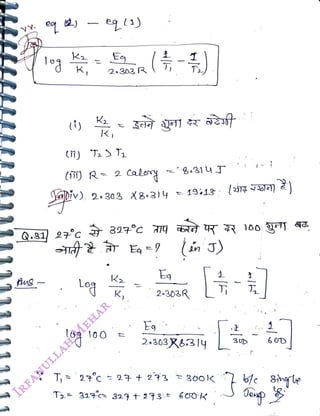 V.V. eq (2) — eq (1)
log K₂/K₁ = Ea/2.303R (1/T₁ - 1/T₂)
(i) K₂/K₁ = इतने गुना दर बढेगी
(ii) T₂ > T₁
(iii) R = 2 Calory = 8.314 J
(iv). 2.303 X 8.314 = 19.13 (याद रखना है)
Q.31) 27°C से 327°C ताप करने पर दर 100 गुना बढ़
जाती है तो Ea = ? (in J)
Ans - Log K₂/K₁ = Ea/2.303R [1/T₁ - 1/T₂]
log 100 = Ea/2.303X8.314 [1/300 - 1/600]
∵ T₁ = 27°C = 27 + 273 = 300K } b/c single
T₂ = 327°C = 327 + 273 = 600K } Temp है
IRFANULLAH MEHAR